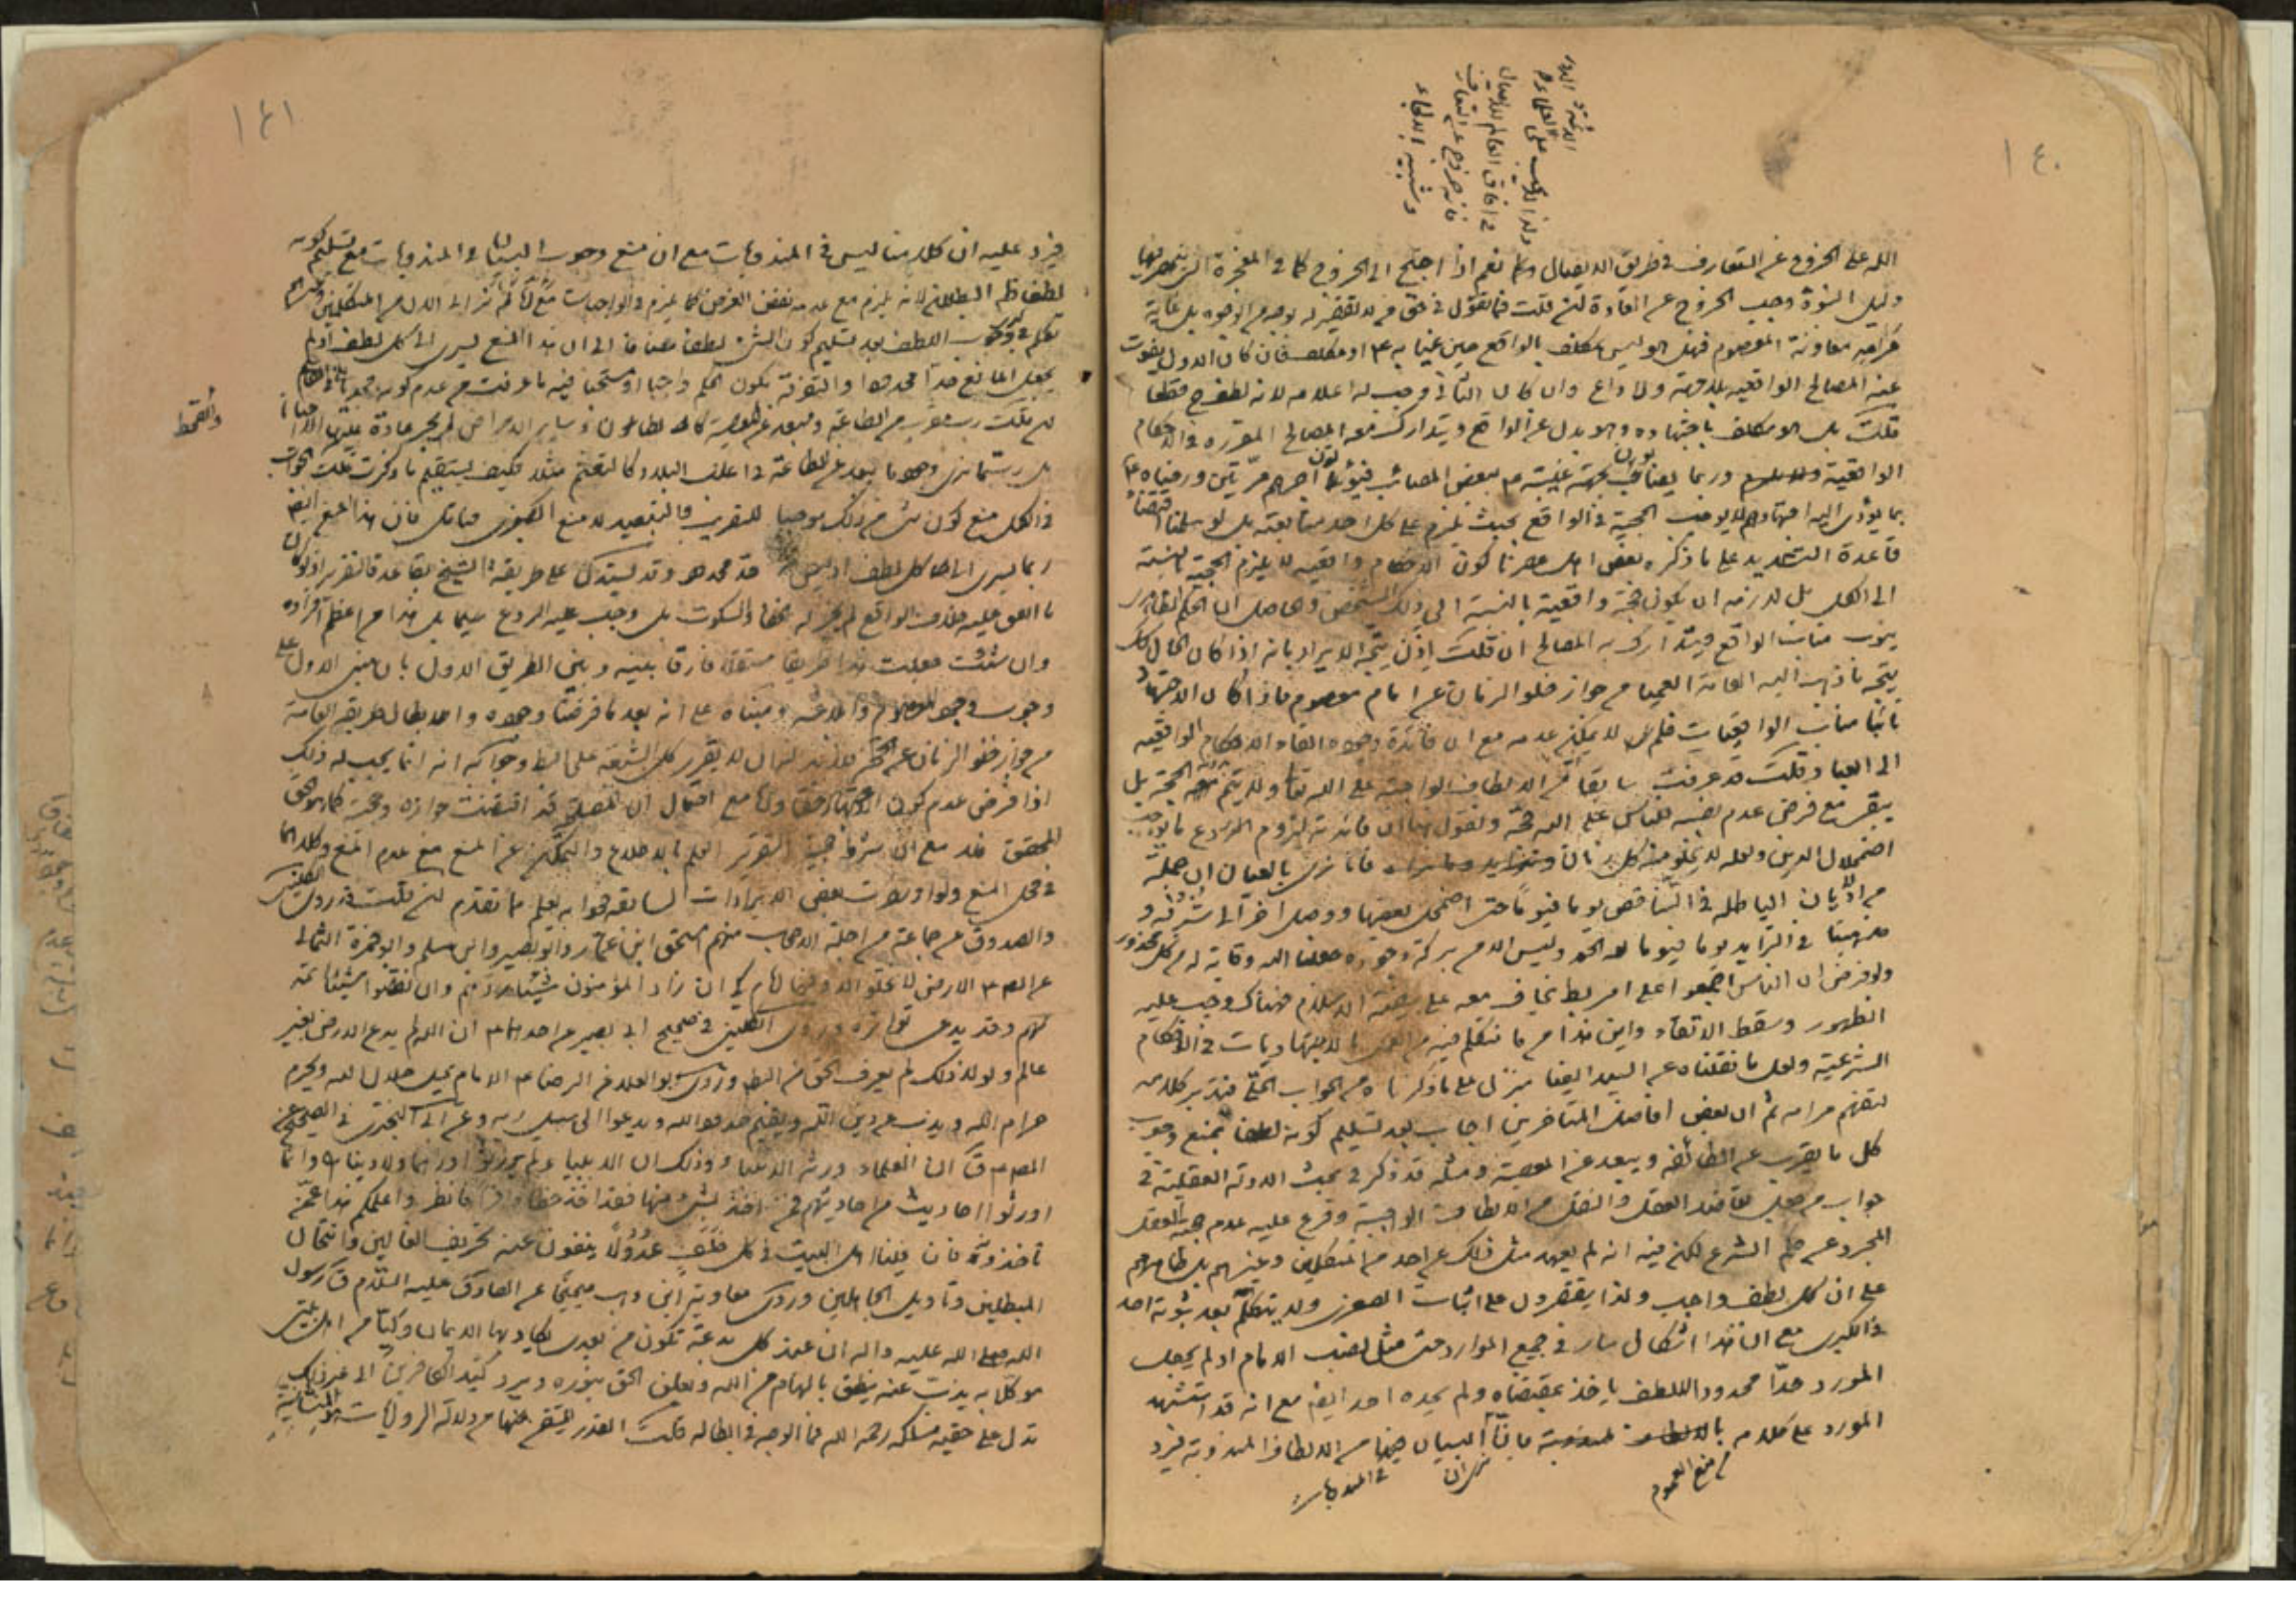 ١٤٠
الله على الخروج عن المتعارف في طريق الايصال نعم اذا احتيج الى الخروج كما في المعجزة التي
دليل النبوة وجب الخروج عن العادة لئن قلت فما تقول في حق من لا تقصير له بوجه من الوجوه بل غاية
مرامه معاونة المعصوم فهل هو ليس مكلف بالواقع حين غيابه ع او مكلف فان كان الاول يفوت
عنه المصالح الواقعية بلا جهة ولا داع وان كان الثاني وجب له اعلامه لانه لطف قطعا
قلت بل هو مكلف باجتهاده وهو بدل عن الواقع ويتدارك معه المصالح المقررة في الاحكام
الواقعية وربما يصابون بجهة غيبته ع ببعض المصائب فيؤتون اجرهم مرتين ورضاه ع
بما يؤدى اليه اجتهادهم لا يوجب الحجية في الواقع بحيث يلزم على كل احد متابعته بل لو سلمنا
قاعدة التسديد على ما ذكره بعض اهل عصرنا كون الاحكام واقعية لا يلزم الحجية بالنسبة
الى الكل بل لازمه ان يكون حجة واقعية بالنسبة الى ذلك الشخص والحاصل ان الحكم الظاهرى
ينوب مناب الواقع فيتدارك به المصالح ان قلت اذن يتجه الايراد بانه اذا كان الحال كك
يتجه ما ذهب اليه العامة العمياء من جواز خلو الزمان عن امام معصوم فاذا كان الاجتهاد
نائبا مناب الواقعيات فلم لا يمكن عدمه مع ان فائدة وجوده القاء الاحكام الواقعية
الى العباد قلت قد عرفت سابقا ان الالطاف الواجبة على الله تعالى ولا يتم الحجة بل
يبقى مع فرض عدم نصبه للناس على الله حجة ونقول هنا ان فائدته لزوم الردع عما يوجب
اضمحلال الدين ولعله لا يخلو منه كل زمان فانا نرى بالعيان ان جملة
من الاديان الباطلة في التناقص يوما فيوما حتى اضمحل بعضها ووصل آخر الى
مذهبنا في التزايد يوما فيوما لله الحمد وليس الا من بركة وجوده جعلنا الله وقاية له من كل محذور
ولو فرض ان الناس اجمعوا على امر يخاف معه على بيضة الاسلام فهناك وجب عليه
الظهور وسقط الاتقاء واين هذا من ما نتكلم فيه من العمل بالاجتهاديات في الاحكام
الشرعية ولعل ما نقلناه عن السيد ايضا ينزل على ما ذكرناه من الجواب الحلي فتدبر كلامه
لتفهم مرامه ثم ان بعض افاضل المتاخرين اجاب بعد تسليم كونه لطفا بمنع وجوب
كل ما يقرب من الطاعة ويبعد عن المعصية ومثله قد ذكر في بحث الادلة العقلية في
جواب من جعل تعاضد العقل والنقل من الالطاف الواجبة وفرع عليه عدم حجية العقل
المجرد عن حكم الشرع لكن فيه انه لم يعهد مثل ذلك عن احد من المتكلمين وغيرهم بل ظاهرهم
على ان كل لطف واجب ولذا يقتصرون على اثبات الصغرى ولا يتكلم بعد ثبوته احد
في الكبرى مع ان هذا اشكال سار في جميع الموارد حتى مثل نصب الامام اذ لم يجعل
المورد حدا محدودا للطف ياخذ بمقتضاه ولم يحده احد ايضا مع انه قد استشهد
المورد على كلامه بان البيان من الالطاف المندوبة فيرد
منع العموم
في المندوبات
ولذا لا يجب على العلماء
في آفاق العالم للايصال
فانه خروج عن المتعارف
وشبيه الالجاء
١٤١
فيرد عليه ان كلامنا ليس في المندوبات مع ان منع وجوب البيان في المندوبات مع تسليم كونه
لطفا ظاهر البطلان لانه يلزم مع عدمه نقض الغرض كما يلزم في الواجبات
تكلم في وجوب اللطف بعد تسليم كون الشيء لطفا مضافا الى ان هذا المنع يسرى الى كل لطف اذ لم
يجعل المانع حدا محدودا والتفرقة بكون الحكم واجبا او مستحبا فيه ما عرفت من عدم كونه
لئن قلت رب مقرب من الطاعة ومبعد عن المعصية كالطاعون وسائر الامراض لم يجر عادة
بل ربما نرى وجود ما يبعد عن الطاعة في اغلب البلاد كالتنعم مثلا فكيف يستقيم ما ذكرت قلت الجواب
في الكل منع كون شيء من ذلك موجبا للتقريب والتبعيد لا منع الكبرى فتامل فان هذا المنع ايضا
ربما يسرى الى كل لطف اذ ليس له حد محدود وقد يستدل على طريقة الشيخ بقاعدة التقرير اذ لو كان
ما اتفق عليه خلاف الواقع لم يجز له الخفاء والسكوت بل وجب عليه الردع سيما بل هذا من اعظم افراده
وان شئت جعلت هذا طريقا مستقلا فارقا بينه وبين الطريق الاول بان مبنى الاول على
وجوب وجود المعصوم ومبناه على انه بعد ما فرضنا وجوده وابطال طريقة العامة
من جواز خلو الزمان عن الحجة لا يقرر كل الشيعة على الخطا وجوابه انه انما يجب له ذلك
اذا فرض عدم كون مع احتمال ان المصلحة قد اقتضت جوازه وحجيته كما هو الحق
المحقق هذا مع ان شرط حجية التقرير العلم بالاطلاع والتمكن من المنع مع عدم المنع وكلاهما
في محل المنع ولو اوردت بعض الايرادات السابقة فجوابه يعلم مما تقدم لئن قلت قد روى الكلينى
والصدوق عن جماعة من اجلة الاصحاب منهم اسحق ابن عمار وابو بصير وابن مسلم وابو حمزة الثمالى
عن الصادق ع ان الارض لا تخلو الا وفيها امام كي ان زاد المؤمنون شيئا ردهم وان نقصوا شيئا تمه
لهم وقد يدعى تواتره وروى الكلينى في صحيح ابى بصير عن احدهما ع ان الله لم يدع الارض بغير
عالم ولولا ذلك لم يعرف الحق من الباطل وروى ابو العلاء عن الرضا ع الامام يحل حلال الله ويحرم
حرام الله ويذب عن دين الله ويقيم حدود الله ويدعوا الى سبيل ربه وعن ابى البخترى في الصحيح عن
الصادق ع قال ان العلماء ورثة الانبياء وذلك ان الانبياء لم يورثوا درهما ولا دينارا وانما
اورثوا احاديث من احاديثهم فمن اخذ بشيء منها فقد اخذ حظا وافرا فانظروا علمكم هذا عمن
تاخذونه فان فينا اهل البيت في كل خلف عدولا ينفون عنه تحريف الغالين وانتحال
المبطلين وتاويل الجاهلين وروى معاوية ابن وهب صحيحا عن الصادق عليه السلام قال رسول
الله صلى الله عليه واله ان عند كل بدعة تكون من بعدى يكاد بها الايمان وليا من اهل بيتى
موكلا به يذب عنه ينطق بالهام من الله ويعلن الحق بنوره ويرد كيد الكافرين الى غير ذلك
تدل على حقية مسلكه رحمه الله فما الوجه في ابطاله قلت القدر المتيقن منها من دلالة الروايات
والقحط